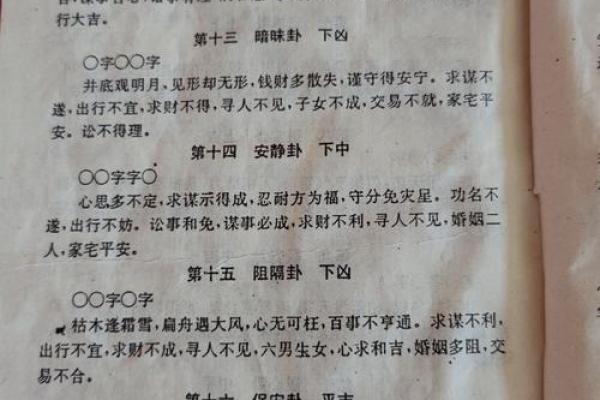 行大吉。
第十三 暗昧卦 下凶
〇字〇〇字
井底观明月,见形却无形,钱财多散失,谨守得安宁。求谋不
遂,出行不宜,求财不得,寻人不见,子女不成,交易不就,家宅平
安。讼不得理。
第十四 安静卦 下中
〇〇字字〇
心思多不定,求谋示得成,忍耐方为福,守分免灾星。功名不
遂,出行不妨。讼事和免,谋事必成,求财不利,寻人不见,婚姻二
人,家宅平安。
第十五 阻隔卦 下凶
〇〇字〇字
枯木逢霜雪,扁舟遇大风,心无可枉,百事不亨通。求谋不利,
出行不宜,求财不成,寻人不见,六男生女,心求和吉,婚姻多阻,交
易不合。
第十六 保安卦 平吉